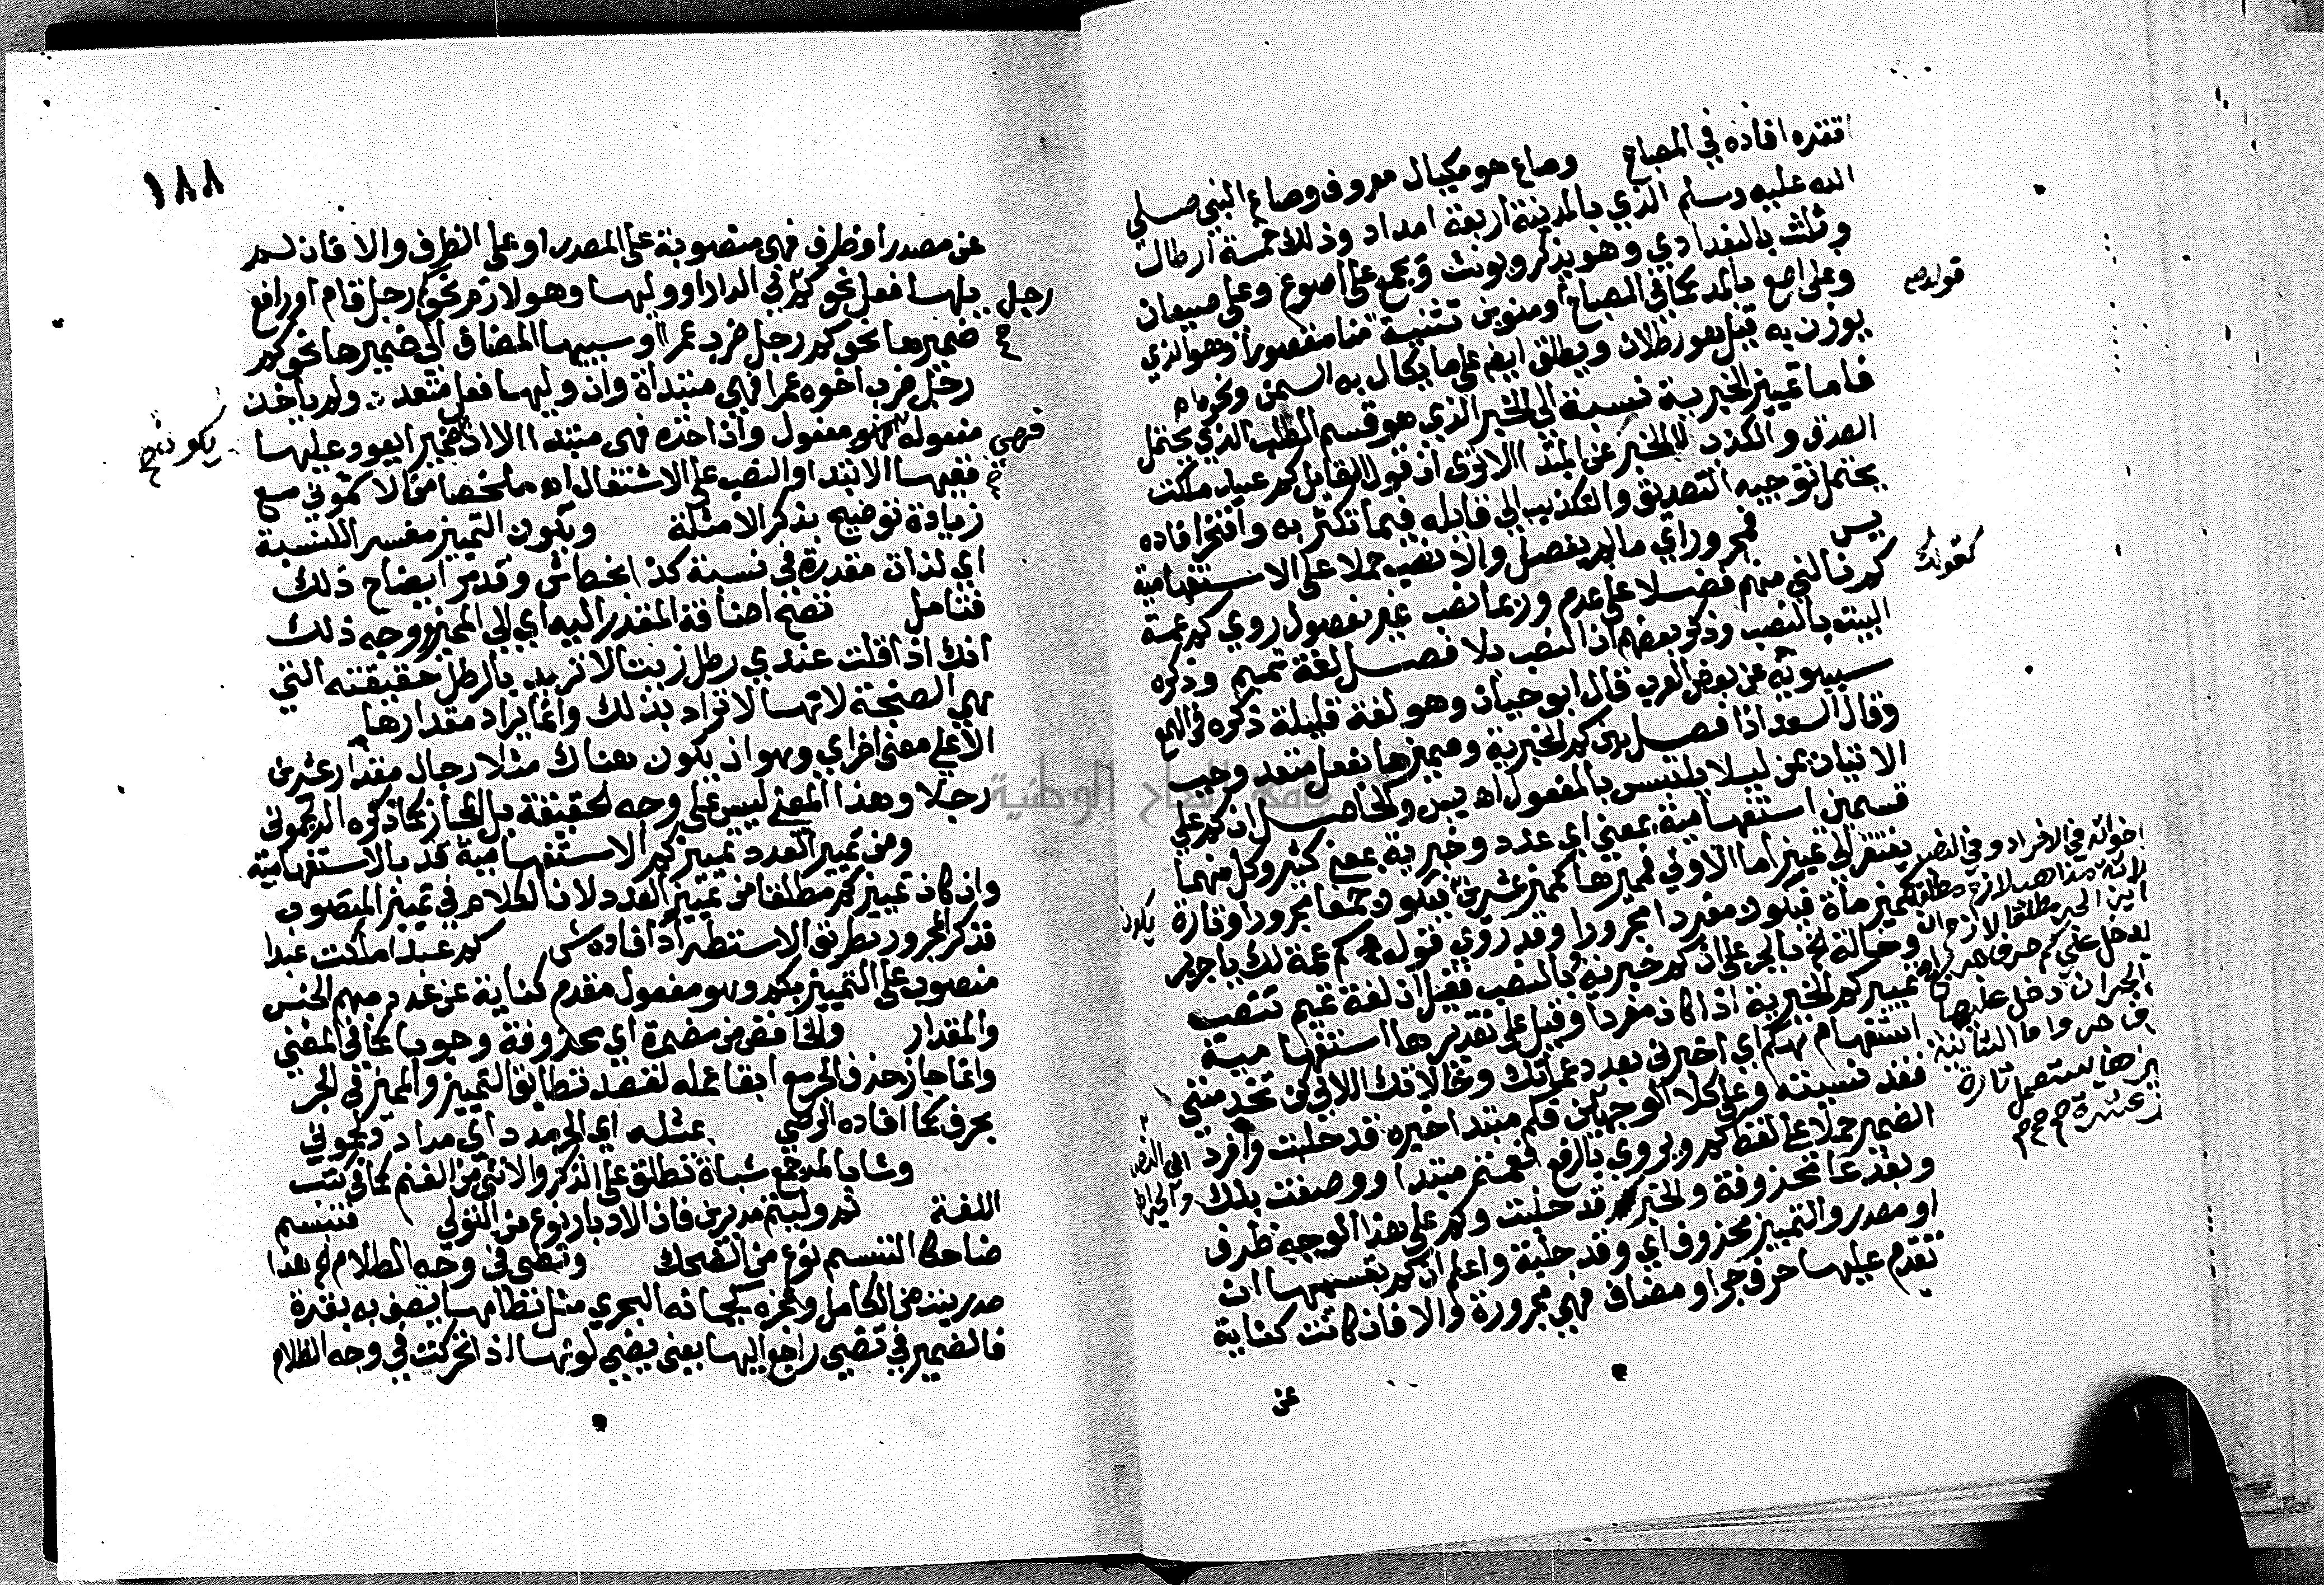 اقتنده افاده في المصباح وصاع هو مكيال معروف وصاع النبي صلى
الله عليه وسلم الذي بالمدينة اربعة امداد وذلك خمسة ارطال
وثلث بالبغدادي وهو يذكر ويونث ويجمع على اصوع وعلى صيعان
قوله ص
وعلى اصع بالمد كما في المصباح ومنوين تثنية منا مقصورا وهو الذي
يوزن به قيل هو رطلان ويطلق ايض على ما يكال به السمن ونحوه اه
فاما تمييز الخبرية نسبة الى الخبر الذي هو قسيم الطلب الذي يحتمل
الصدق والكذب لا الخبر عن المبتدا الا ترى ان قول القايل كم عبيد ملكت
يحتمل توجيه التصديق والتكذيب الى قايله فيما تكثر به وافتخر افاده
يس فمجرور اي ما لم يفصل والا نصب حملا على الاستفهامية
كقولك
كم نالني منهم فضلا على عدم وربما نصب غير مفصول روي كم عمة
البيت بالنصب وذكر بعضهم ان النصب بلا فصل لغة تميم وذكره
سيبويه عن بعض العرب قال ابو حيان وهو لغة قليلة ذكره في الهمع
وقال السعد اذا فصل بين كم الخبرية ومميزها بفعل متعد وجب
الاتيان بمن ليلا يلتبس بالمفعول اه يس والحاصل ان كم على
قسمين استفهامية بمعنى اي عدد وخبرية بمعنى كثير وكل منهما
يفتقر الى تمييز اما الاولى فمميزها كمميز عشرين
اخواته في الافراد وفي النصب
ثلاثة مذاهب لازم مطلقا
الجر مطلقا لازم ان
يدخل على كم حرف جر
الجر ان دخل عليها
حرف جر واما الثانية
مميزها يستعمل تارة
عشرة
فيكون جمعا مجرورا وتارة
يكون
كمميز ماة فيكون مفردا مجرورا وقد روي قوله كم عمة لك يا جرير
وخالة بالجر على ان كم خبرية وبالنصب فقيل ان لغة تميم تنصب
تمييز كم الخبرية اذا كان مفردا وقيل على تقديرها استفهامية
استفهام تهكم اي اخبرني بعدد عماتك وخالاتك اللاتي كن يخدمنني
فقد نسيته وعلى كلا الوجهين فكم مبتدا خبره قد حلبت وافرد
الضمير حملا على لفظ كم ويروى بالرفع فعمة مبتدا ووصفت بلك
وبفدعا محذوفة والخبر قد حلبت وكم على هذا الوجه ظرف
او مصدر والتمييز محذوف اي وقد حلبة واعلم ان كم بقسميها ان
تقدم عليها حرف جر او مضاف فهي مجرورة والا فان كانت كناية
عن
١٨٨
عن مصدر او ظرف فهي منصوبة على المصدر او على الظرف والا فان لم
يلها فعل نحو كم في الدار او وليها وهو لازم نحو كم رجل قام او رافع
رجل
ضميرها نحو كم رجل ضرب عمرا او سببيها المضاف الى ضميرها نحو كم
رجل ضرب اخوه عمرا فهي مبتداة وان وليها فعل متعد ولم ياخذ
مفعوله فهو مفعول وان اخذه فهي مبتدا الا ان ضميرا يعود عليها
فهي
يكون
ففيها الابتدا والنصب على الاشتغال اه ملخصا من الاشموني مع
زيادة توضيح بذكر الامثلة ويكون التمييز مفسرا للنسبة
اي لذات مقدرة في نسبة كذا بخط ش وقد مر ايضاح ذلك
فتامل تصح اضافة المقدر اليه اي الى المميز ووجه ذلك
انك اذا قلت عندي رطل زيت لا تريد بالرطل حقيقته التي
هي الصنجة لانها لا تراد بذلك وانما يراد مقدارها
الا على معنى اخر اي وهو ان يكون هناك مثلا رجال مقدار عشرين
رجلا وهذا المعنى ليس على وجه الحقيقة بل المجاز كما ذكره الديموني
ومن تمييز العدد تمييز كم الاستفهامية قيد بالاستفهامية
وان كان تمييز كم مطلقا من تمييز العدد لان الكلام في تمييز المنصوب
فذكر المجرور بطريق الاستطراد افاده ش كم عبدا ملكت عبدا
منصوب على التمييز بكم وهو مفعول مقدم كناية عن عدد مبهم الجنس
والمقدار والخافض من مضمرة اي محذوفة وجوبا كما في المغني
وانما جاز حذف الجر مع ابقا عمله لقصد تطابق التمييز والمميز في الجر
بحرف كما افاده الرضي بمثله اي الجر مددا اي مداد ديموني
وشا بالمد جمع شاة تطلق على الذكر والانثى من الغنم كما في كتب
اللغة ثم وليتم مدبرين فان الادبار نوع من التولي فتبسم
ضاحكا التبسم نوع من الضحك وتضي في وجه الظلام هذا
صدر بيت من الكامل وعجزه كجمانة البحري سل نظامها يصف به بقرة
فالضمير في تضي راجع اليها يعني يضي لونها اذا تحركت في وجه الظلام
جامعة النجاح الوطنية